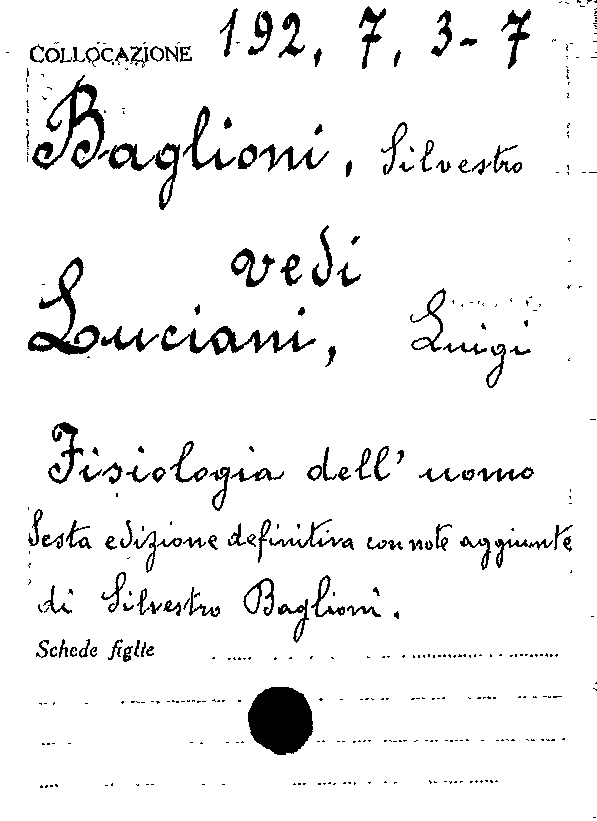 COLLOCAZIONE 192, 7, 3-7
Baglioni, Silvestro
vedi
Luciani, Luigi
Fisiologia dell' uomo
Sesta edizione definitiva con note aggiunte
di Silvestro Baglioni.
Schede figlie